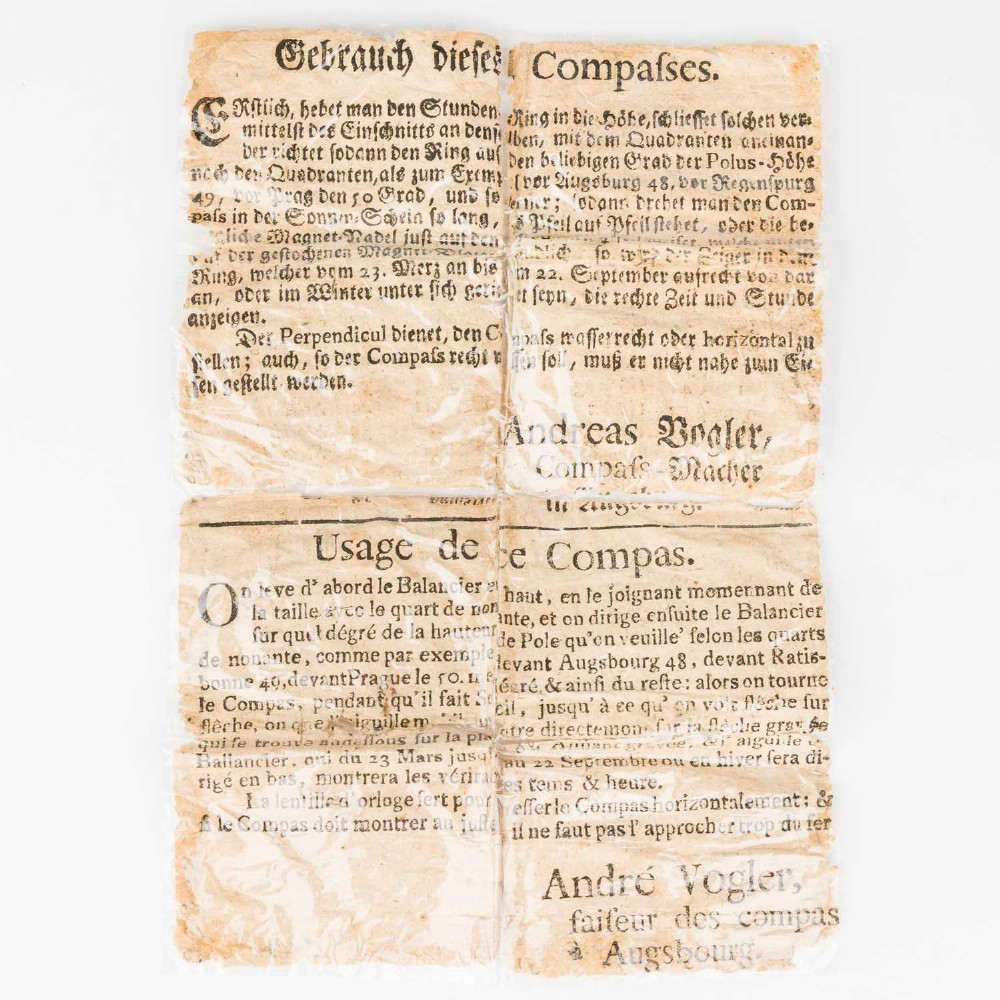 Gebrauch dieses Compaſses.
ERſtlich, hebet man den Stunden-Ring in die Höhe, ſchlieſſet ſolchen ver-
mittelſt des Einſchnitts an denſelben, mit dem Quadranten aneinan-
der richtet ſodann den Ring auf den beliebigen Grad der Polus-Höhe
nach den Quadranten, als zum Exempel vor Augsburg 48, vor Regenſpurg
49, vor Prag den 50 Grad, und ſo ; ſodann drehet man den Com-
paſs in der Sonnen-Schein ſo lang, Pfeil auf Pfeil ſtehet, oder die be-
Magnet-Nadel juſt auf den
auf der geſtochenen ſo wird der Zeiger in dem
Ring, welcher vom 23. Merz an bis 22. September aufrecht von dar
an, oder im Winter unter ſich ſeyn, die rechte Zeit und Stunde
anzeigen.
Der Perpendicul dienet, den Compaſs waſſerrecht oder horizontal zu
ſtellen; auch, ſo der Compaſs recht ſoll, muß er nicht nahe zum Eiſ
ſen geſtellt werden.
Andreas Vogler,
Compaſs-Macher
in Augsburg.
Usage de ce Compas.
On leve d' abord le Balancier haut, en le joignant momennant de
la taille avec le quart de nonante, et on dirige enſuite le Balancier
ſur quel dégré de la hauteur de Pole qu'on veuille' ſelon les quarts
de nonante, comme par exemple devant Augsbourg 48, devant Ratis-
bonne 49, devant Prague le 50. dégré, & ainſi du reſte: alors on tourne
le Compas, pendant qu'il fait Soleil, jusqu' à ce qu' on voit flêche ſur
flêche, directement ſur la flêche gravée
qui ſe trouve ſur la & l' aiguille
Ballancier, qui du 23 Mars jusqu' au 22 Septembre ou en hiver ſera di-
rigé en bas, montrera les tems & heure.
La lentille d'orloge ſert pour dreſſer le Compas horizontalement: &
ſi le Compas doit montrer au juſte il ne faut pas l' approcher trop du fer
André Vogler,
faiſeur des compas
à Augsbourg.